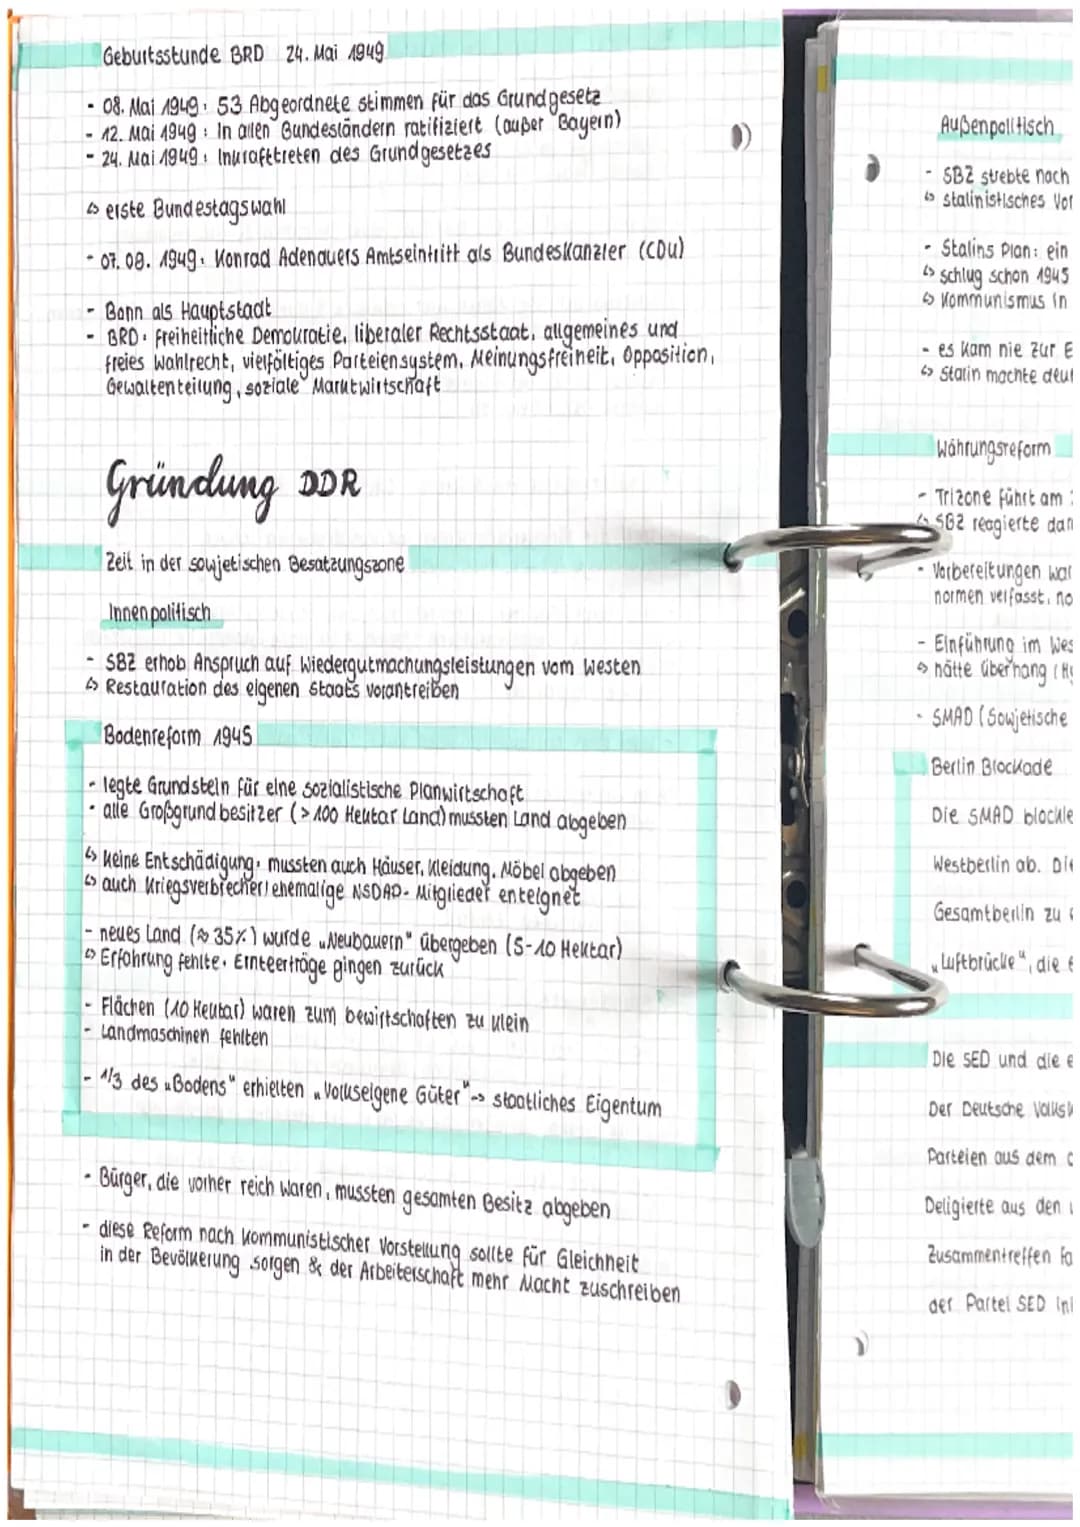 Geburtsstunde BRD 24. Mai 1949
- 08. Mai 1949: 53 Abgeordnete stimmen für das Grundgesetz
- 12. Mai 1949: In allen Bundesländern ratifiziert (außer Bayern)
- 24. Mai 1949: Inkrafttreten des Grundgesetzes
↳ erste Bundestagswahl
- 07. 08. 1949: Konrad Adenauers Amtseintritt als Bundeskanzler (CDU)
- Bonn als Hauptstadt
- BRD: Freiheitliche Demokratie, liberaler Rechtsstaat, allgemeines und
freies Wahlrecht, vielfältiges Parteiensystem, Meinungsfreiheit, Opposition,
Gewaltenteilung, soziale Marktwirtschaft
Gründung DDR
Zeit in der sowjetischen Besatzungszone
Innenpolitisch
- SBZ erhob Anspruch auf Wiedergutmachungsleistungen vom Westen
↳ Restauration des eigenen Staats vorantreiben
Bodenreform 1945
- legte Grundstein für eine sozialistische Planwirtschaft
- alle Großgrundbesitzer (>100 Hektar Land) mussten Land abgeben
↳ keine Entschädigung, mussten auch Häuser, Kleidung, Möbel abgeben
↳ auch Kriegsverbrecher/ehemalige NSDAP-Mitglieder enteignet
- neues Land (≈ 35%) wurde „Neubauern" übergeben (5-10 Hektar)
↳ Erfahrung fehlte. Ernteerträge gingen zurück
- Flächen (10 Hektar) waren zum bewirtschaften zu klein
- Landmaschinen fehlten
- 1/3 des „Bodens" erhielten „Volkseigene Güter" -> staatliches Eigentum
- Bürger, die vorher reich waren, mussten gesamten Besitz abgeben
- diese Reform nach kommunistischer Vorstellung sollte für Gleichheit
in der Bevölkerung sorgen & der Arbeiterschaft mehr Macht zuschreiben
Außenpolitisch
- SBZ strebte nach
↳ stalinistisches Vor
- Stalins Plan: ein
↳ schlug schon 1945
↳ Kommunismus in
- es kam nie zur E
↳ Stalin machte deut
Währungsreform
- Trizone führt am
↳ SBZ reagierte dar
- Vorbereitungen war
normen verfasst, no
- Einführung im Wes
↳ hätte Überhang (Hy
- SMAD (Sowjetische
Berlin Blockade
Die SMAD blockie
Westberlin ab. Die
Gesamtberlin zu
„Luftbrücke", die e
Die SED und die e
Der Deutsche Volksk
Parteien aus dem
Deligierte aus den
Zusammentreffen fa
der Partei SED in